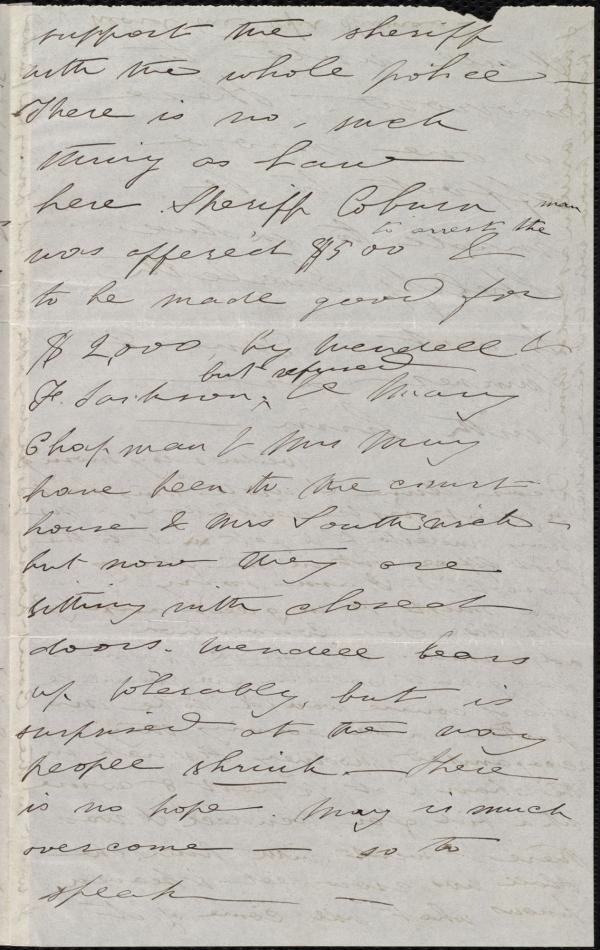 support the sheriff
with the whole police —
There is no, such
thing as Law —
here. Sheriff Coburn
man
to arrest the
was offered $500 &
to be made good for
$2,000 by Wendell &
but refused
F. Jackson, Mary
Chapman & Mrs May
have been to the court
house & Mrs Southwick —
but now they are
sitting with closed
doors. Wendell bears
up tolerably, but is
surprised at the way
people shrink — there
is no hope. May is much
overcome — so to
speak — —